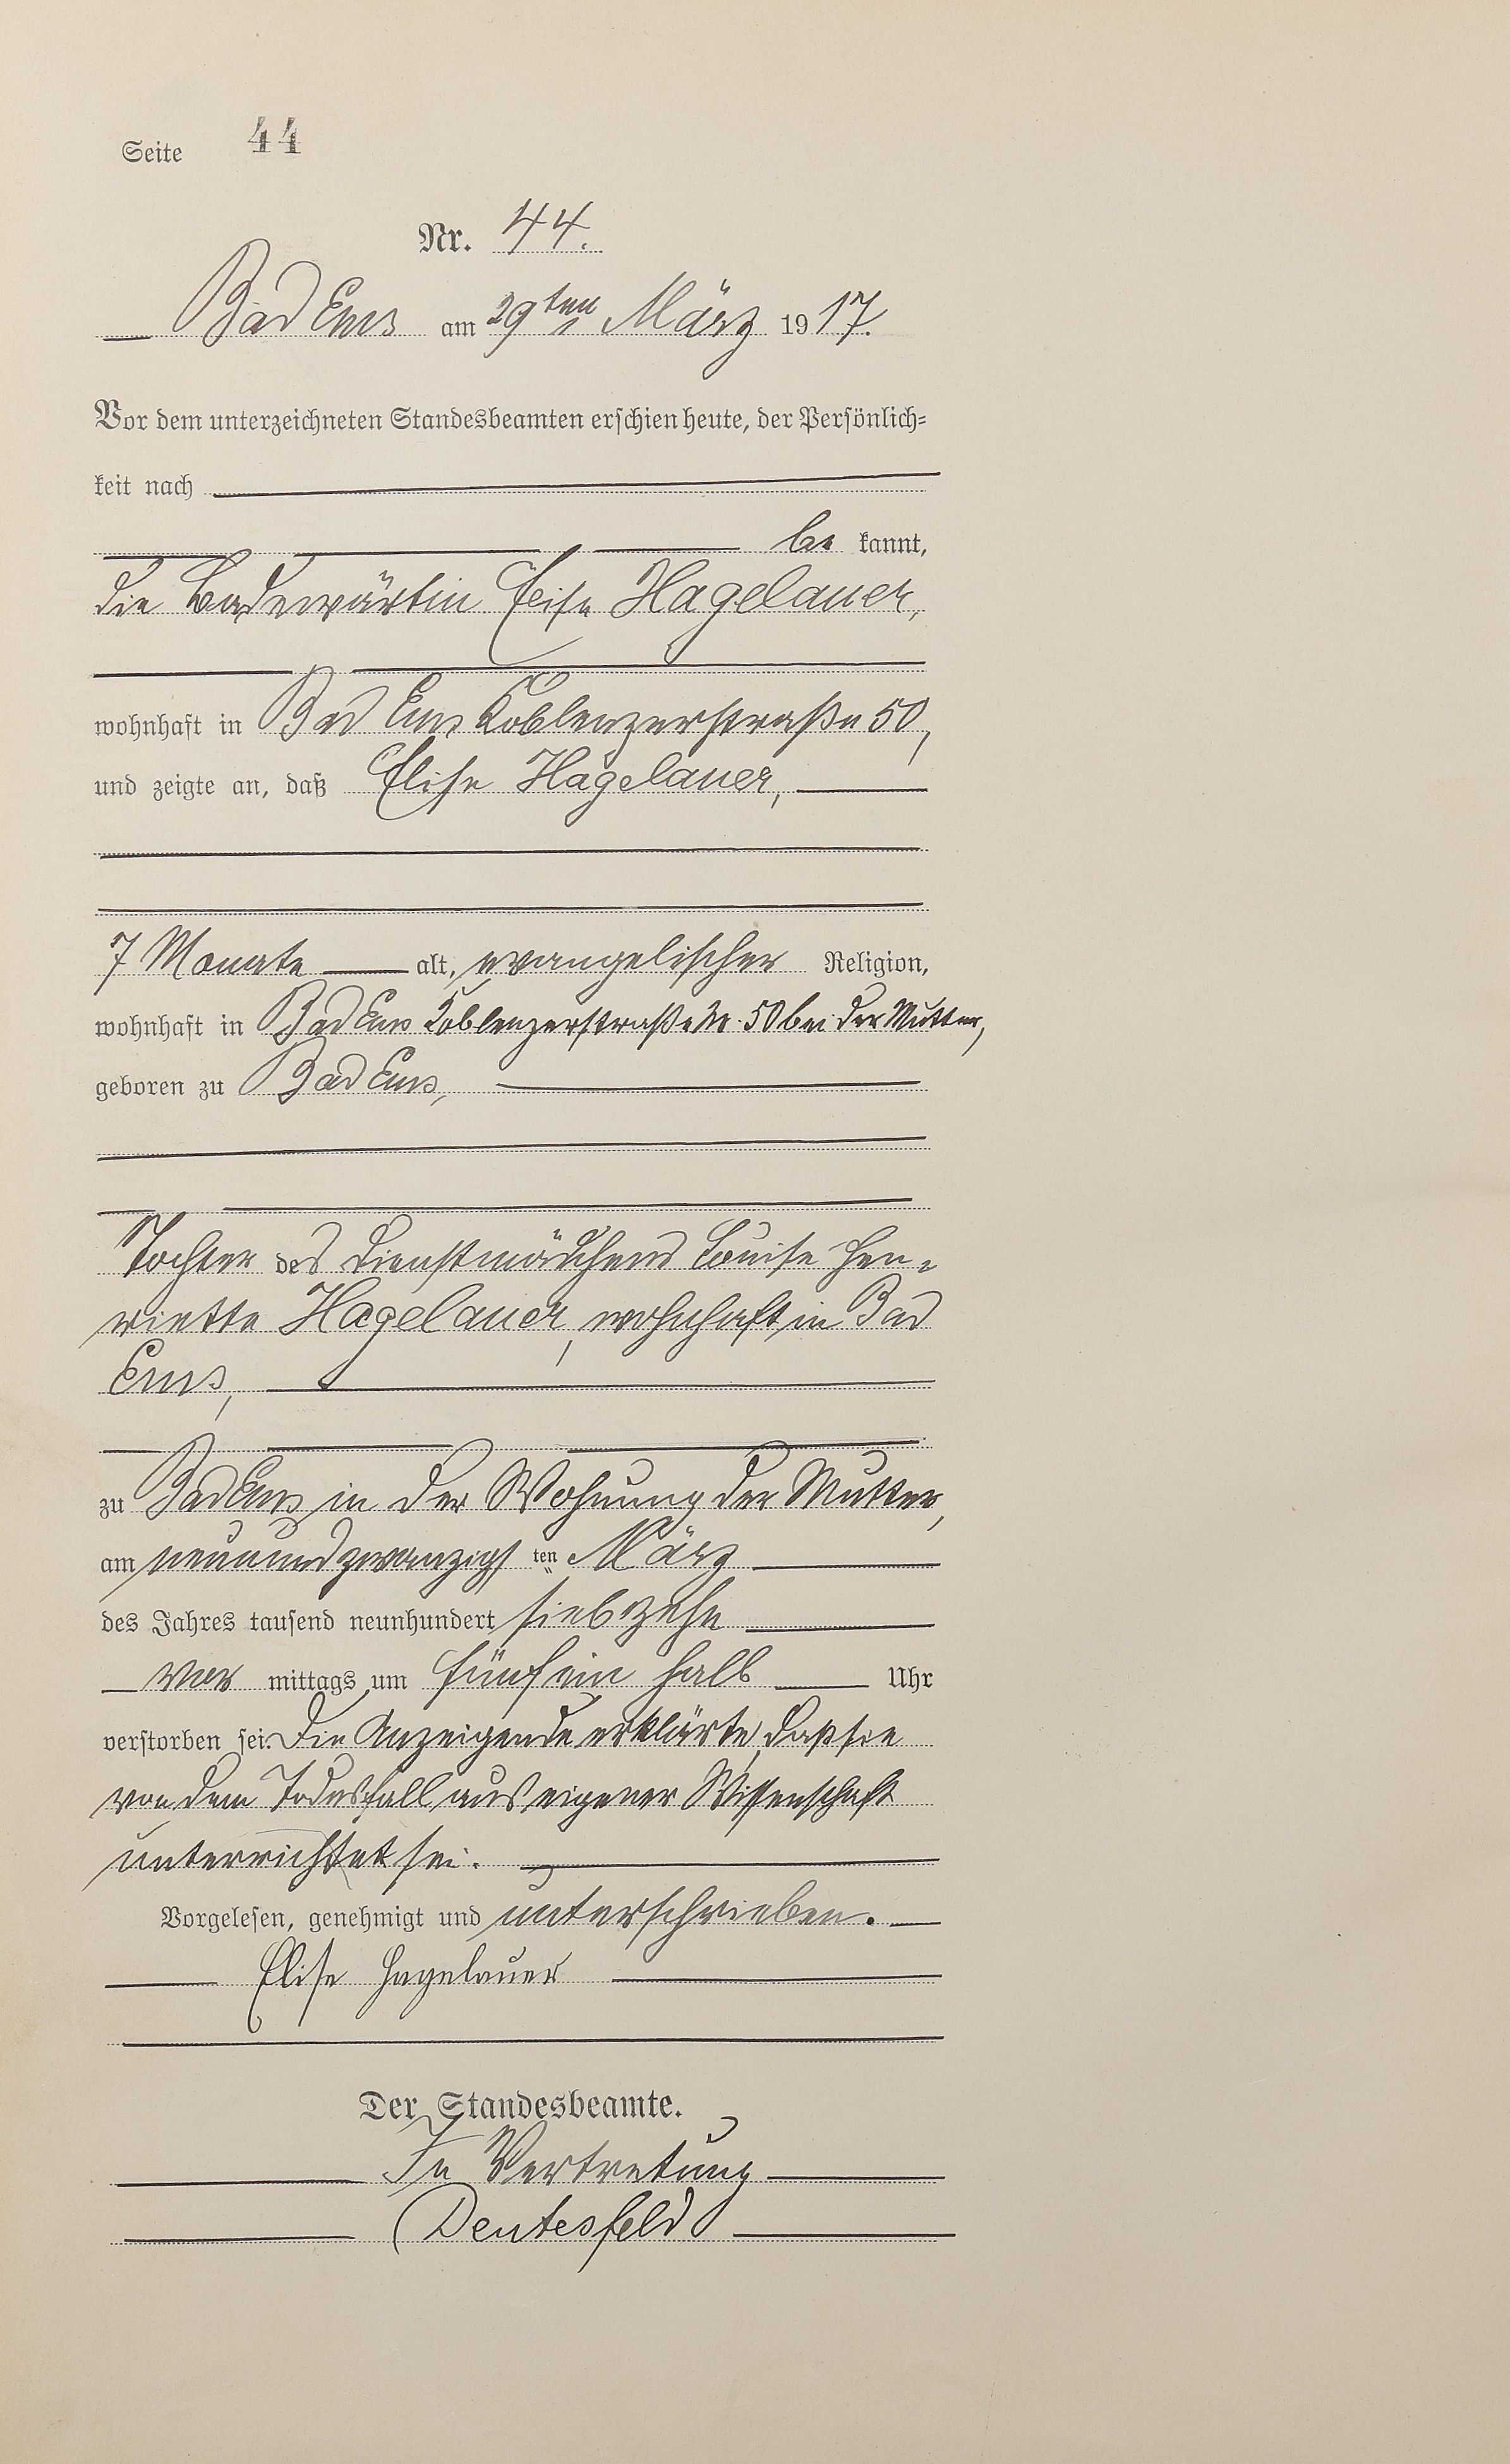 Seite 44
Nr. 44.
Bad Ems am 29ten März 1917.
Vor dem unterzeichneten Standesbeamten erschien heute, der Persönlich=
keit nach
be kannt,
die Badewärtin Elise Hagelauer,
wohnhaft in Bad Ems Koblenzerstraße 50,
und zeigte an, daß Elise Hagelauer,
7 Monate alt, evangelischer Religion,
wohnhaft in Bad Ems Koblenzerstraße Nr. 50 bei der Mutter,
geboren zu Bad Ems,
Tochter des Dienstmädchens Louise Hen=
riette Hagelauer, wohnhaft in Bad
Ems,
zu Bad Ems in der Wohnung der Mutter,
am neunundzwanzigsten März
des Jahres tausend neunhundert siebzehn
vor mittags um fünf ein halb Uhr
verstorben sei. Die Anzeigende erklärte, daß sie
von dem Todesfall aus eigener Wissenschaft
unterrichtet sei.
Vorgelesen, genehmigt und unterschrieben.
Elise Hagelauer
Der Standesbeamte.
In Vertretung
Deutesfeld